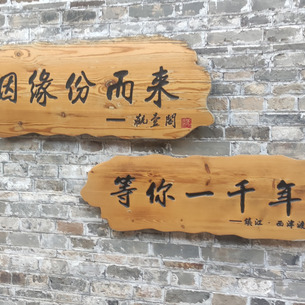 因缘份而来
等你一千年
—镇江·西津渡